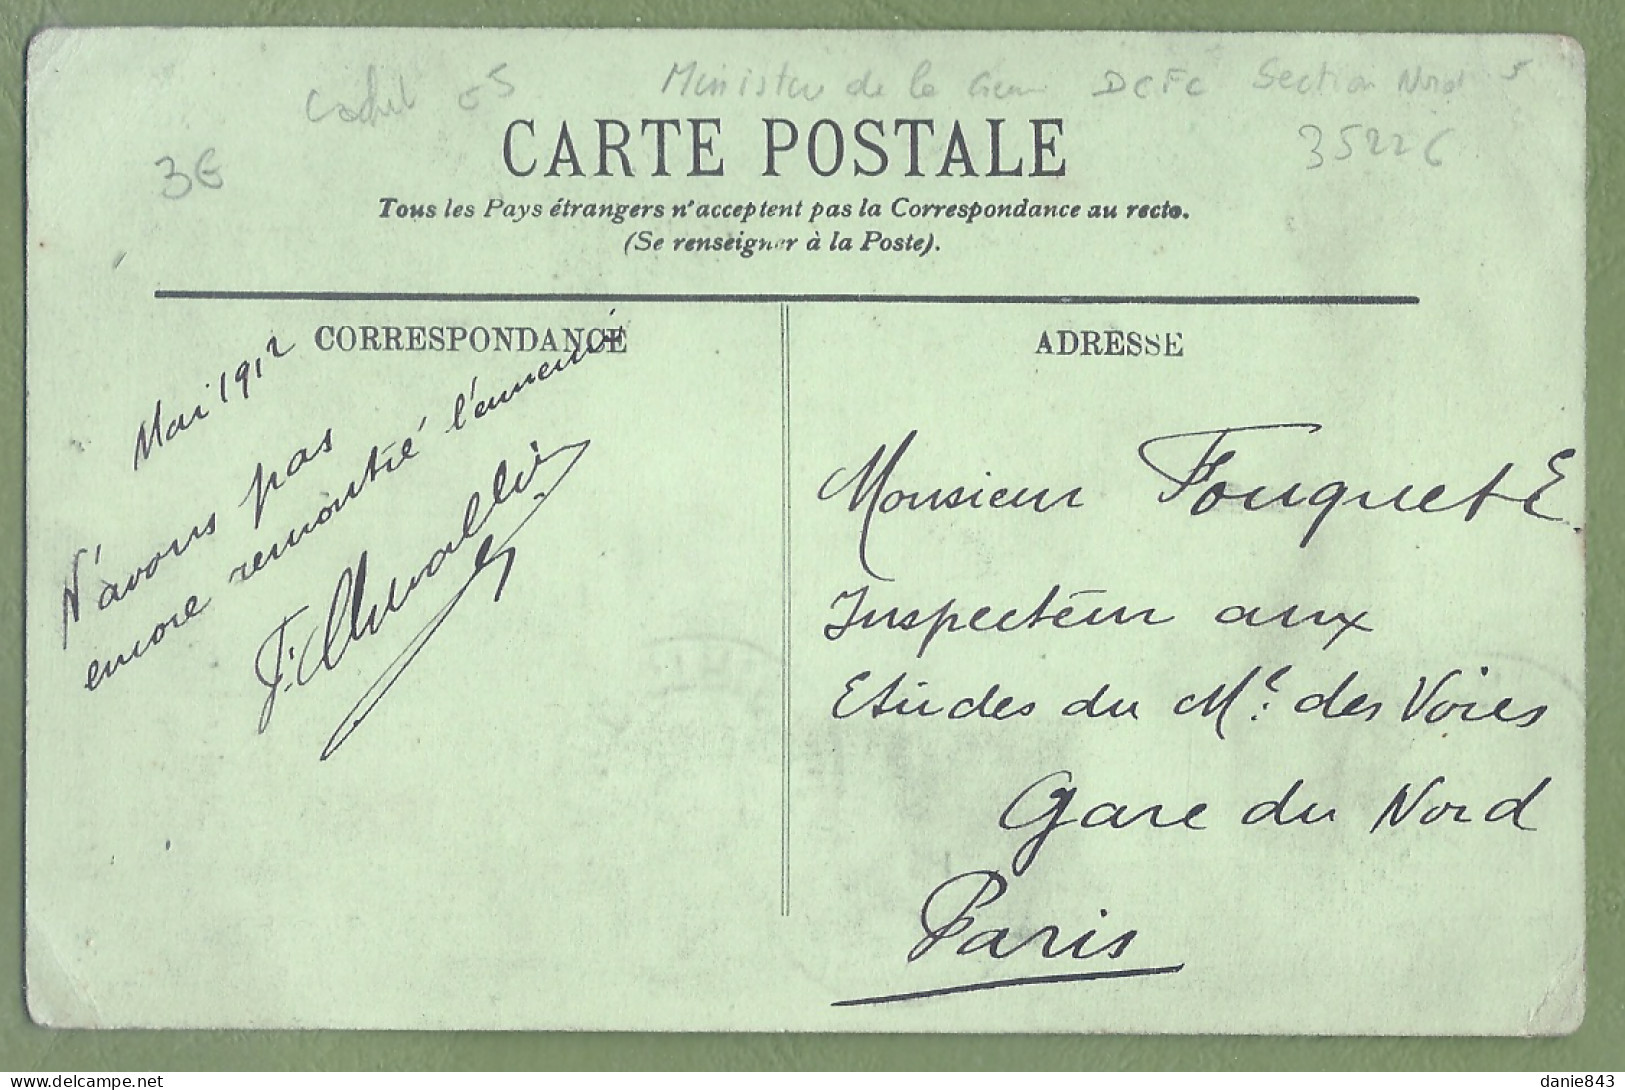 Ministère de la Guerre DCFC Section Nord 5
Cachet 05
35226
3€
CARTE POSTALE
Tous les Pays étrangers n'acceptent pas la Correspondance au recto.
(Se renseigner à la Poste).
CORRESPONDANCE
Mai 1912
N'avons pas
encore remontré l'ennemi
ADRESSE
Monsieur Fouquet E.
Inspecteur aux
Etudes du Mel des Voies
Gare du Nord
Paris
delcampe.net
danie843